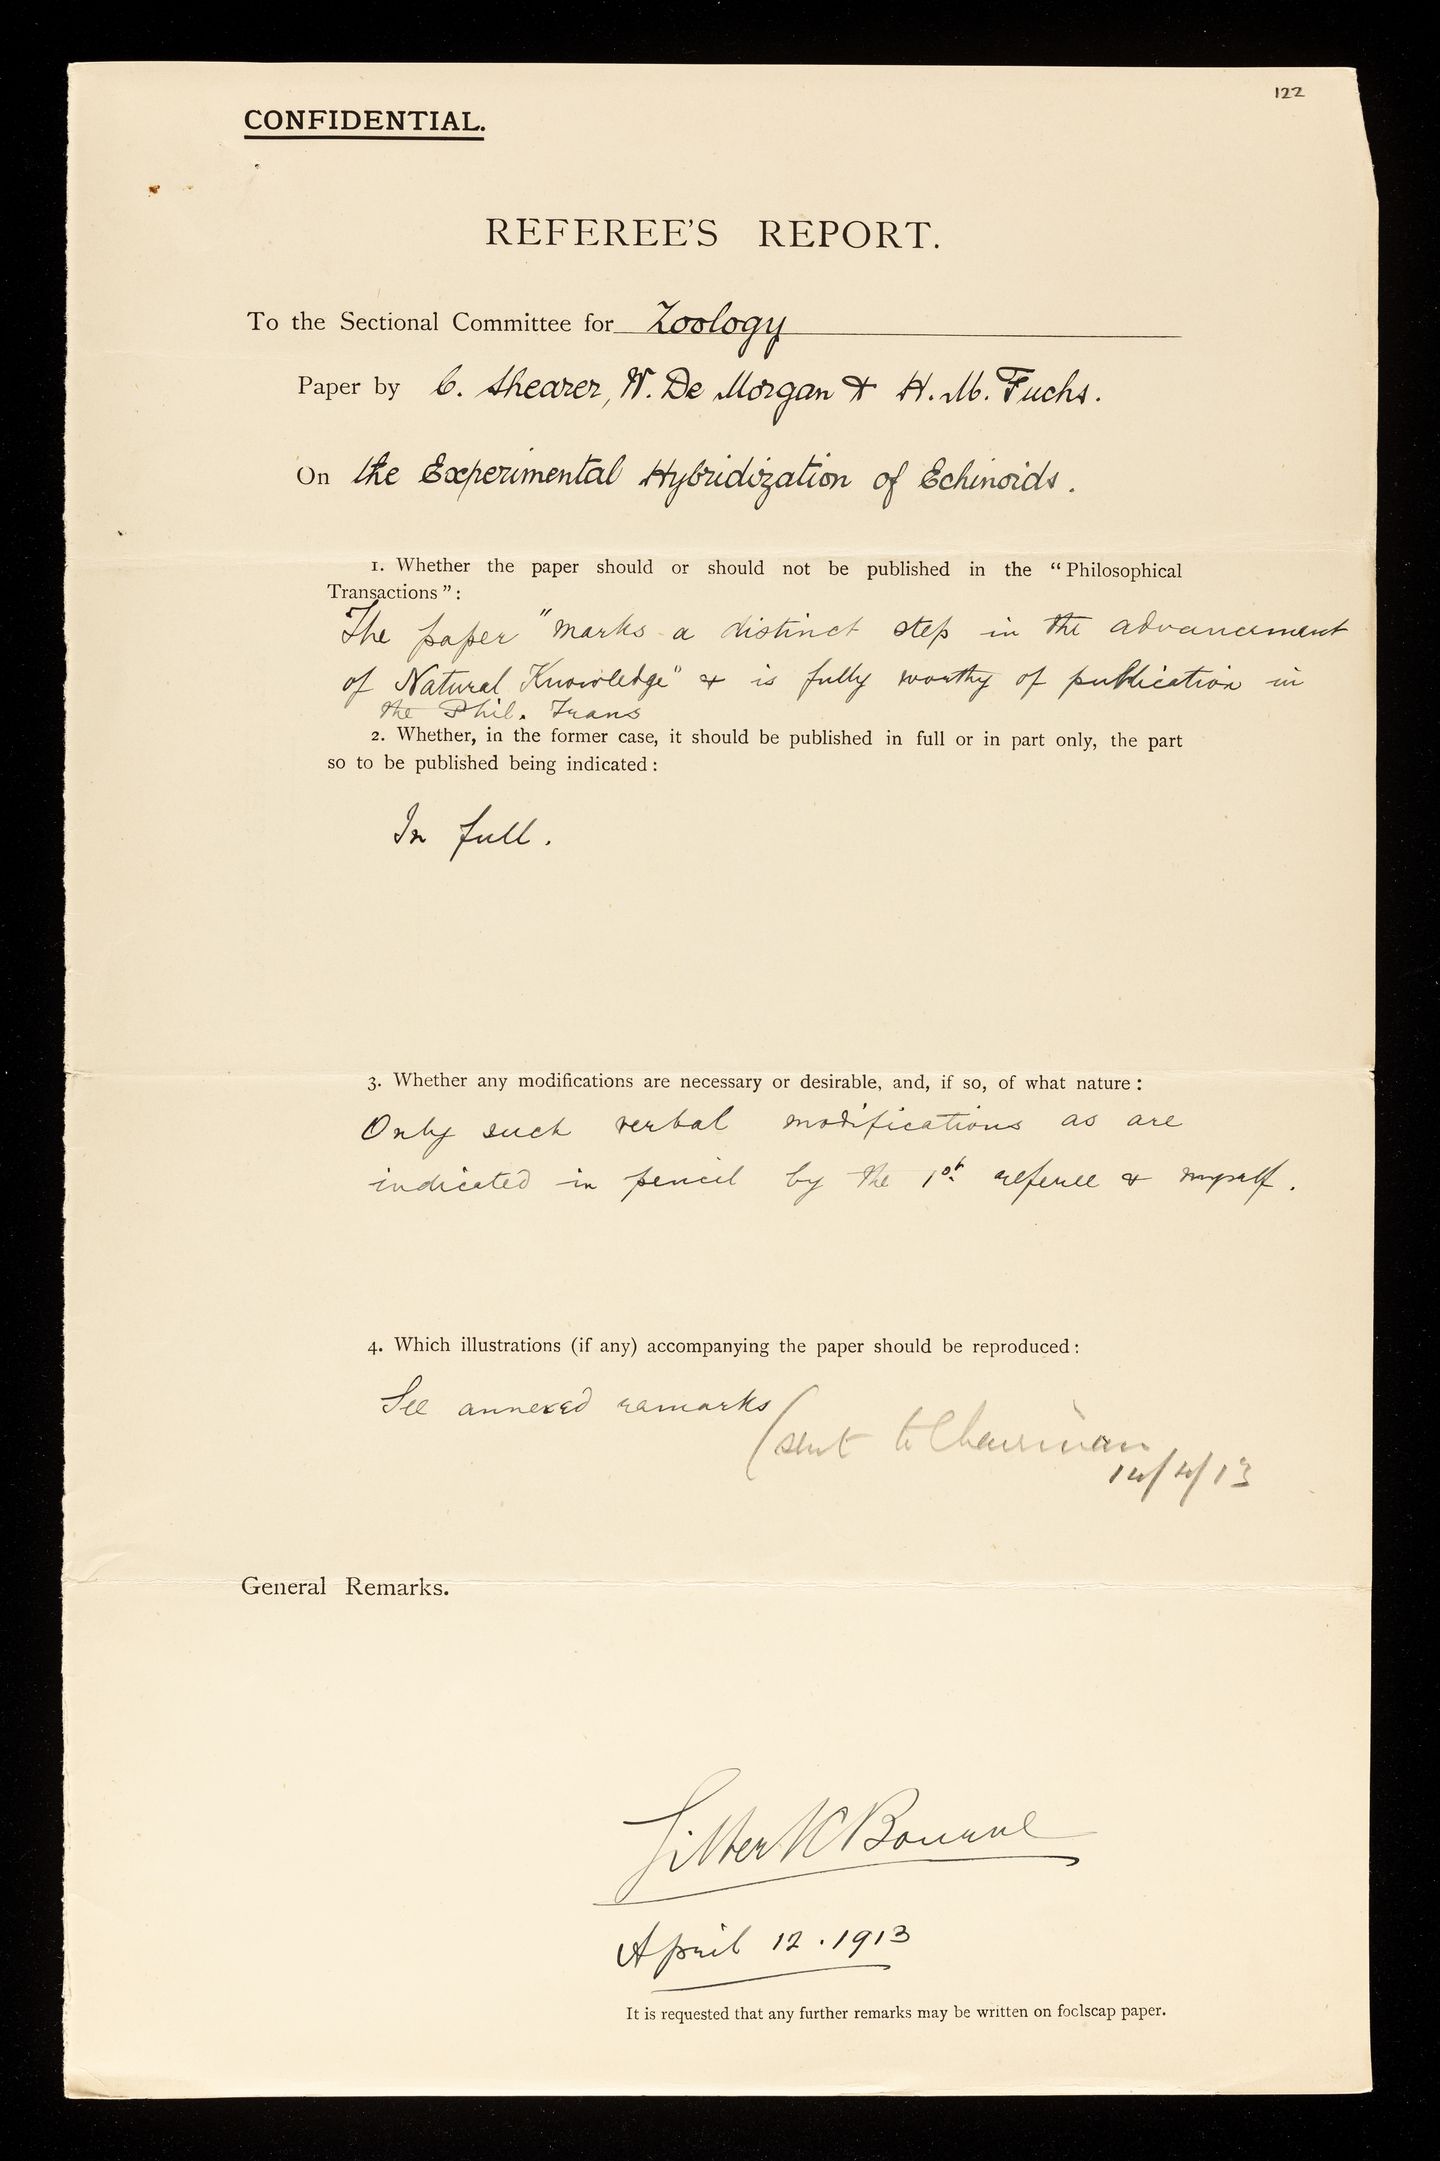 122
CONFIDENTIAL.
REFEREE'S REPORT.
To the Sectional Committee for Zoology
Paper by C. Shearer, W. De Morgan & H. M. Fuchs.
On the Experimental Hybridization of Echinoids.
1. Whether the paper should or should not be published in the "Philosophical
Transactions":
The paper "marks a distinct step in the advancement
of Natural Knowledge" & is fully worthy of publication in
the Phil. Trans
2. Whether, in the former case, it should be published in full or in part only, the part
so to be published being indicated:
In full.
3. Whether any modifications are necessary or desirable, and, if so, of what nature:
Only such verbal modifications as are
indicated in pencil by the 1st. referee & myself.
4. Which illustrations (if any) accompanying the paper should be reproduced:
See annexed remarks
(sent to Chairman
14/4/13
General Remarks.
Gilbert C Bourne
April 12. 1913
It is requested that any further remarks may be written on foolscap paper.